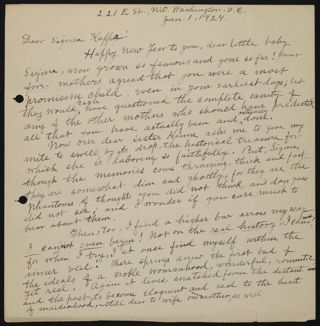 221 E St., N.W. Washington, D.C.
Jan 1, 1924.
Dear Sigma Kappa:
Happy New Year to you, dear little baby
Sigma, now grown so famous and gone so far! Your
fore-mothers agreed that you were a most
promising child, even in your earliest days; but
they would each have questioned the complete sanity of
any of the other mothers who should have predicted
all that you have actually been and done.
Now our dear sister Kinna asks me to give my
mite to swell, by its drop, the historical treasure for
which she is laboring so faithfully. But, Sigma,
though the memories come thronging, thick and fast
they are somewhat dim and ghostly; for they are the
phantoms of thoughts you did not think, and dons you
did not see; and I wonder if you care much to
hear about them.
Then, too, I find a higher bar across my way
I cannot even begin! Not on the real history! I cannot,
for when I try, I at once find myself within the
inner veil. There spring anew the first bud of
the ideals of a noble womanhood, wonderful, romantic
yet real. Again it lives, snatched from the distant
and the past to become eloquent and real to the heart
of maidenhood,—still dear to wife or mother, as well